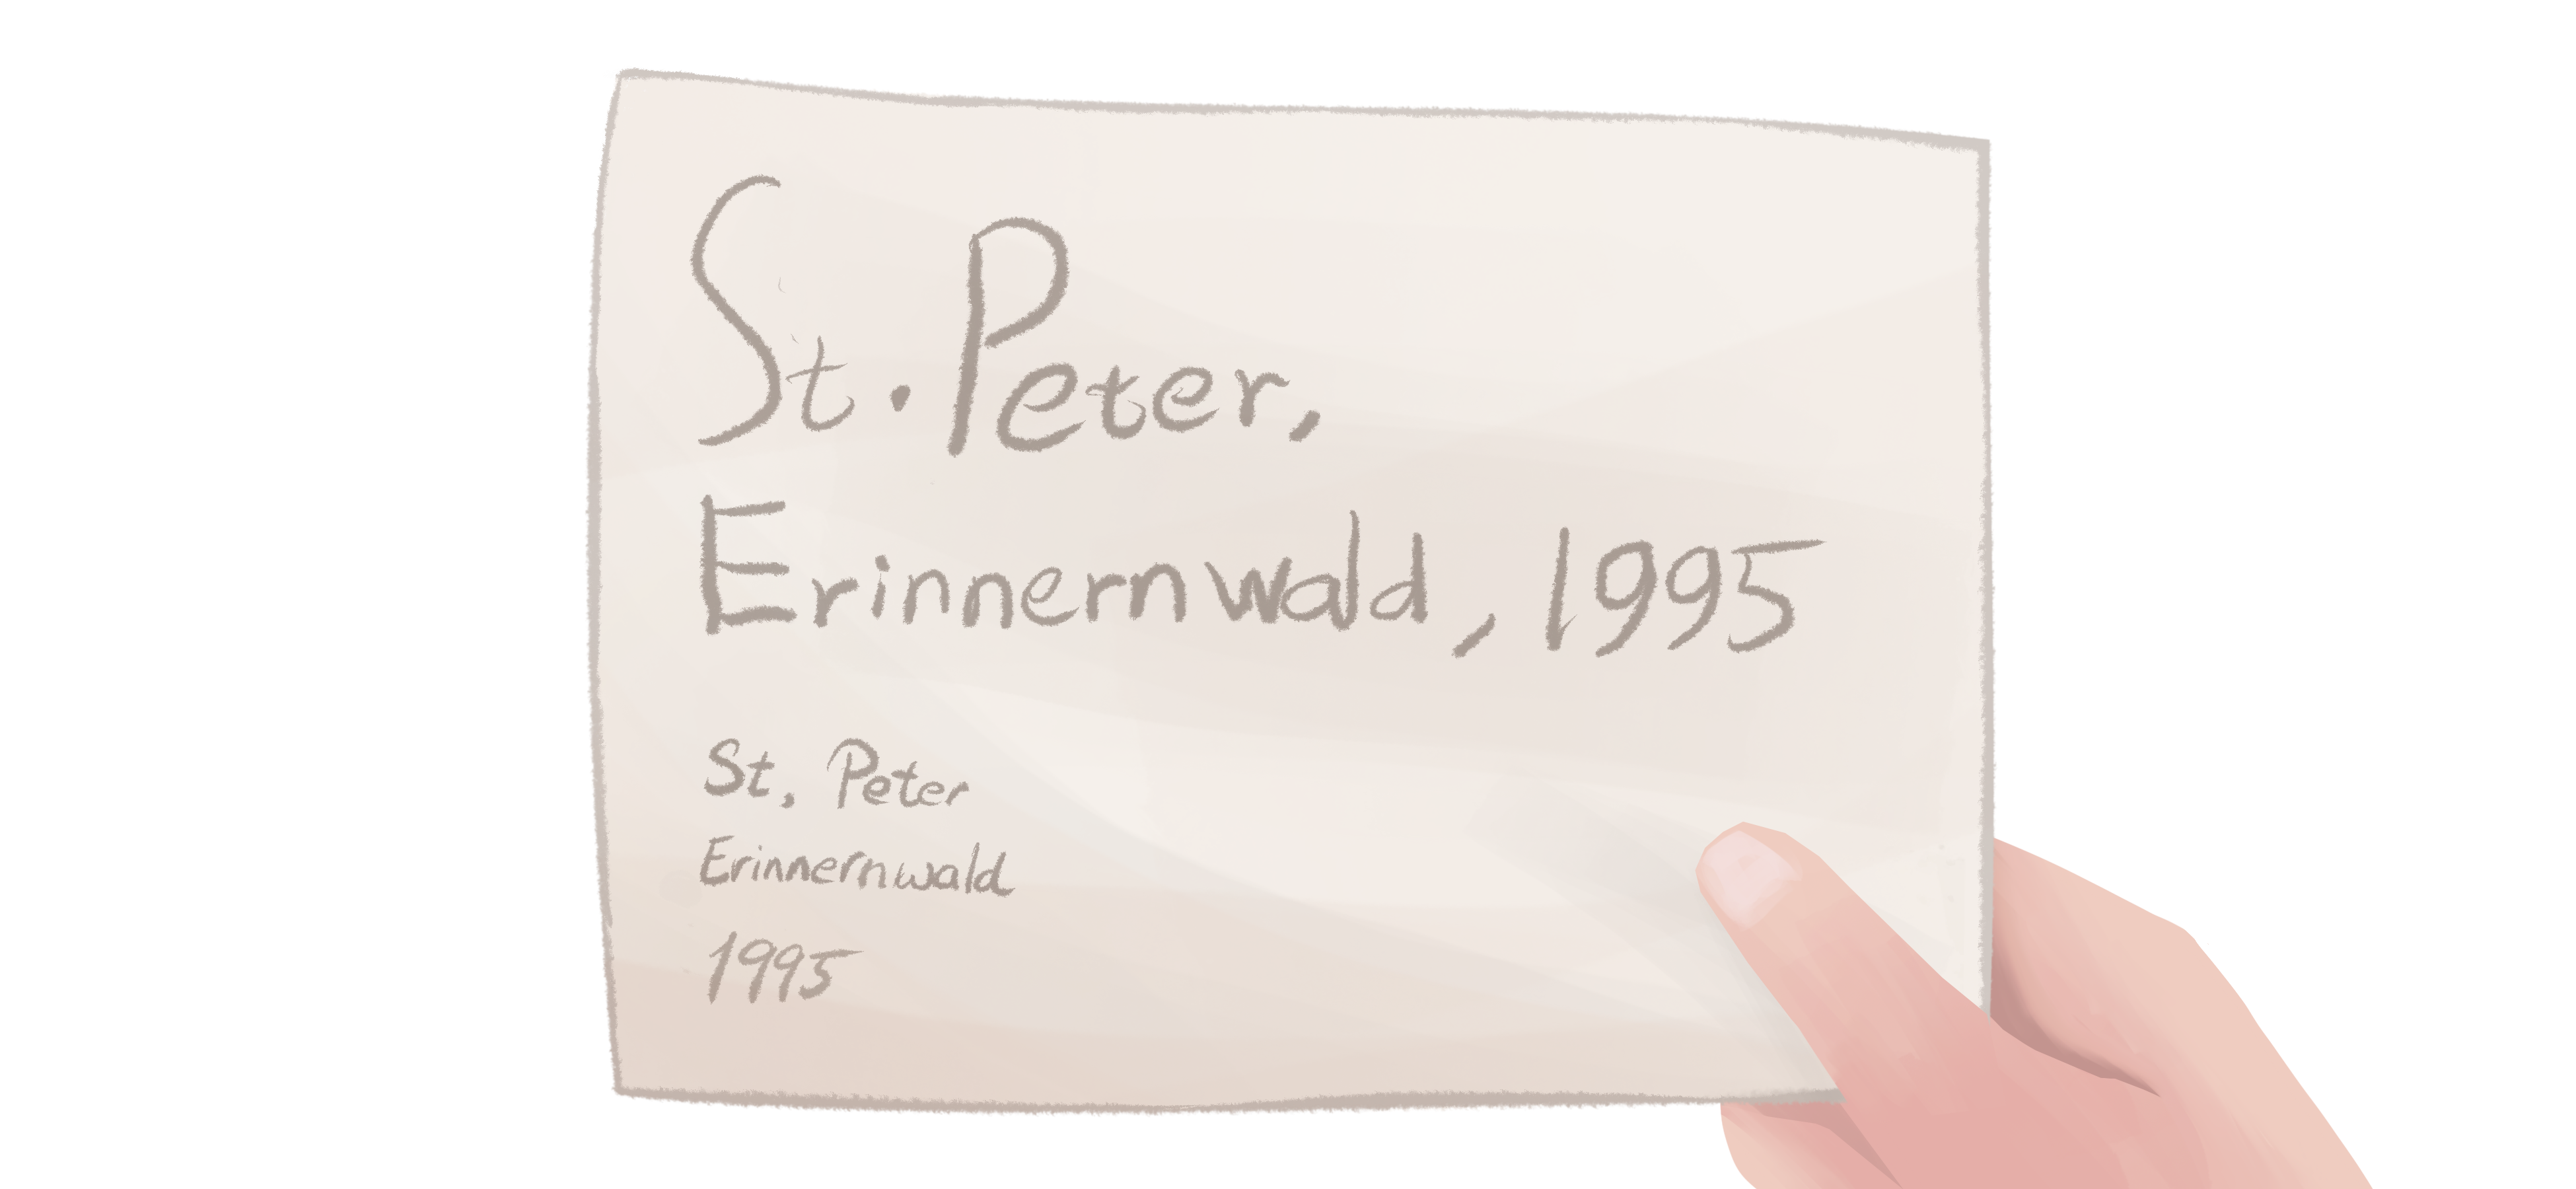 St. Peter,
Erinnernwald, 1995
St. Peter
Erinnernwald
1995